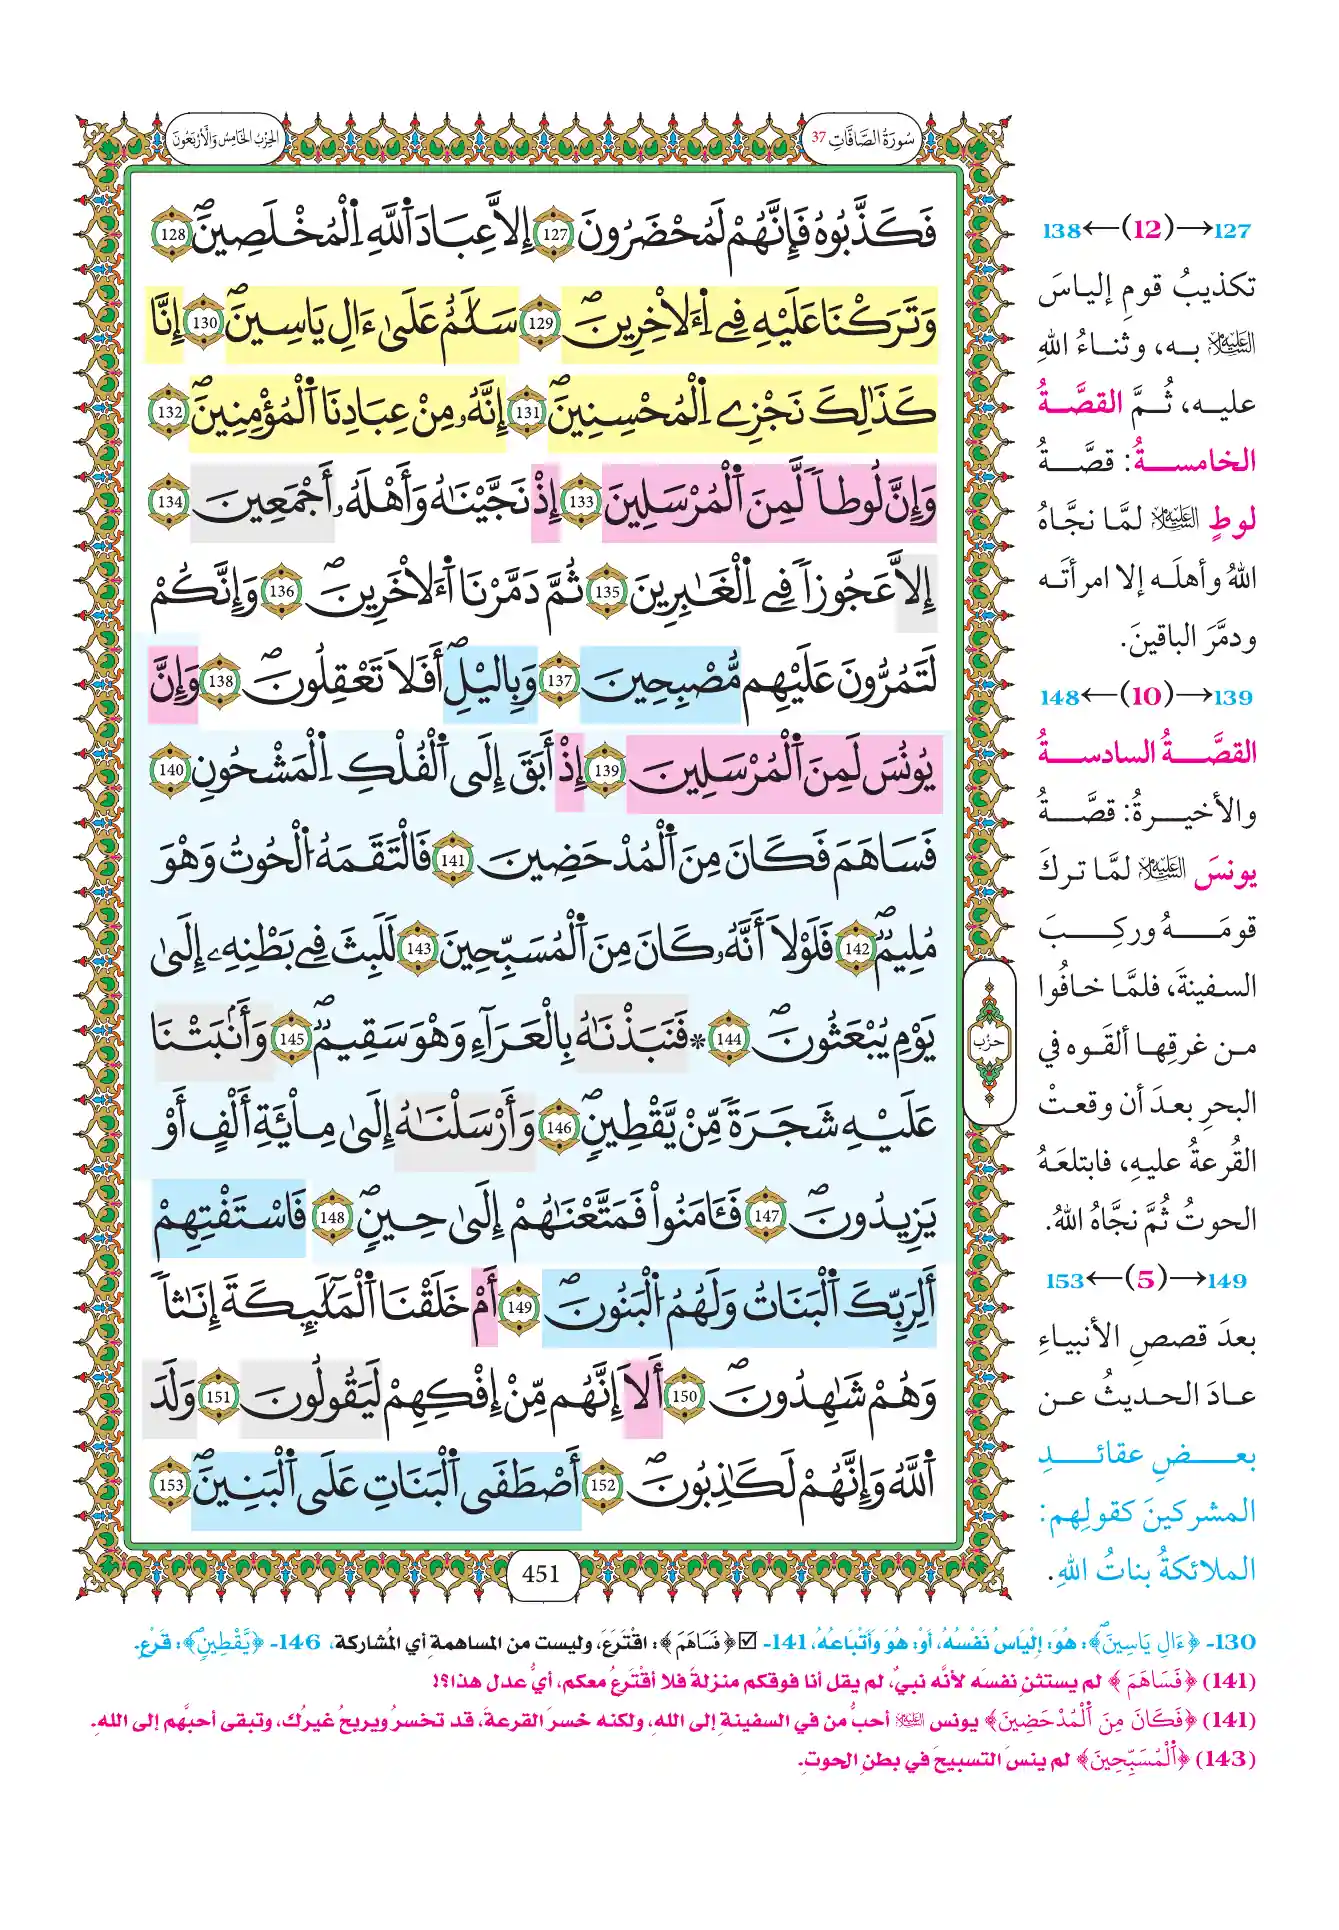 سُورَةُ الصَّافَّاتِ 37
الحِزْبُ الخَامِسُ وَالأَرْبَعُونَ
فَكَذَّبُوهُ فَإِنَّهُمْ لَمُحْضَرُونَ 127 إِلَّا عِبَادَ اَ۬للَّهِ اِ۬لْمُخْلَصِينَۖ 128
وَتَرَكْنَا عَلَيْهِ فِے اِ۬لَاخِرِينَۖ 129 سَلَٰمٌ عَلَىٰ ءَالِ يَاسِينَۖ 130 إِنَّا
كَذَٰلِكَ نَجْزِے اِ۬لْمُحْسِنِينَۖ 131 إِنَّهُۥ مِنْ عِبَادِنَا اَ۬لْمُؤْمِنِينَۖ 132
وَإِنَّ لُوطاٗ لَّمِنَ اَ۬لْمُرْسَلِينَ 133 إِذْ نَجَّيْنَٰهُ وَأَهْلَهُۥٓ أَجْمَعِينَ 134
إِلَّا عَجُوزاٗ فِے اِ۬لْغَٰبِرِينَ 135 ثُمَّ دَمَّرْنَا اَ۬لَاخَرِينَۖ 136 وَإِنَّكُمْ
لَتَمُرُّونَ عَلَيْهِم مُّصْبِحِينَ 137 وَبِالَيْلِۖ أَفَلَا تَعْقِلُونَۖ 138 وَإِنَّ
يُونُسَ لَمِنَ اَ۬لْمُرْسَلِينَ 139 إِذْ أَبَقَ إِلَى اَ۬لْفُلْكِ اِ۬لْمَشْحُونِ 140
فَسَاهَمَ فَكَانَ مِنَ اَ۬لْمُدْحَضِينَ 141 فَالْتَقَمَهُ اُ۬لْحُوتُ وَهْوَ
مُلِيمٞۖ 142 فَلَوْلَا أَنَّهُۥ كَانَ مِنَ اَ۬لْمُسَبِّحِينَ 143 لَلَبِثَ فِے بَطْنِهِۦٓ إِلَىٰ
يَوْمِ يُبْعَثُونَۖ 144 * فَنَبَذْنَٰهُ بِالْعَرَآءِ وَهْوَ سَقِيمٞۖ 145 وَأَنۢبَتْنَا
عَلَيْهِ شَجَرَةٗ مِّنْ يَّقْطِينٖۖ 146 وَأَرْسَلْنَٰهُ إِلَىٰ مِاْئَةِ أَلْفٍ أَوْ
يَزِيدُونَۖ 147 فَـَٔامَنُواْ فَمَتَّعْنَٰهُمْ إِلَىٰ حِينٖۖ 148 فَاسْتَفْتِهِمْ
أَلِرَبِّكَ اَ۬لْبَنَاتُ وَلَهُمُ اُ۬لْبَنُونَۖ 149 أَمْ خَلَقْنَا اَ۬لْمَلَٰٓئِكَةَ إِنَٰثاٗ
وَهُمْ شَٰهِدُونَۖ 150 أَلَا إِنَّهُم مِّنْ إِفْكِهِمْ لَيَقُولُونَ 151 وَلَدَ
اَ۬للَّهُ وَإِنَّهُمْ لَكَٰذِبُونَۖ 152 أَصْطَفَى اَ۬لْبَنَاتِ عَلَى اَ۬لْبَنِينَۖ 153
حزب
451
127→(12)←138
تكذيبُ قومِ إلياسَ
عليه السلام به، وثناءُ اللهِ
عليه، ثُمَّ القصَّةُ
الخامسةُ: قصَّةُ
لوطٍ عليه السلام لمَّا نجَّاهُ
اللهُ وأهلَه إلا امرأتَه
ودمَّرَ الباقينَ.
139→(10)←148
القصَّةُ السادسةُ
والأخيرةُ: قصَّةُ
يونسَ عليه السلام لمَّا تركَ
قومَهُ وركِبَ
السفينةَ، فلمَّا خافُوا
من غرقِها ألقَوه في
البحرِ بعدَ أن وقعتْ
القُرعةُ عليهِ، فابتلعَهُ
الحوتُ ثُمَّ نجَّاهُ اللهُ.
149→(5)←153
بعدَ قصصِ الأنبياءِ
عادَ الحديثُ عن
بعضِ عقائدِ
المشركينَ كقولِهم:
الملائكةُ بناتُ اللهِ.
130- ﴿ءَالِ يَاسِينَۖ﴾: هُوَ: إِلْيَاسُ نَفْسُهُ، أَوْ: هُوَ وَأَتْبَاعُهُ، 141- ☑ ﴿فَسَاهَمَ﴾: اقْتَرَعَ، وليست من المساهمةِ أي المُشاركة، 146- ﴿يَّقْطِينٖۖ﴾: قَرْعٍ.
(141) ﴿فَسَاهَمَ﴾ لم يستثنِ نفسَه لأنَّه نبيٌ، لم يقل أنا فوقكم منزلةً فلا أقْتَرعُ معكم، أيُّ عدل هذا؟!
(141) ﴿فَكَانَ مِنَ اَ۬لْمُدْحَضِينَ﴾ يونس عليه السلام أحبُّ من في السفينةِ إلى اللهِ، ولكنه خسرَ القرعةَ، قد تخسرُ ويربحُ غيرُك، وتبقى أحبَّهم إلى اللهِ.
(143) ﴿اَ۬لْمُسَبِّحِينَ﴾ لم ينسَ التسبيحَ في بطنِ الحوتِ.